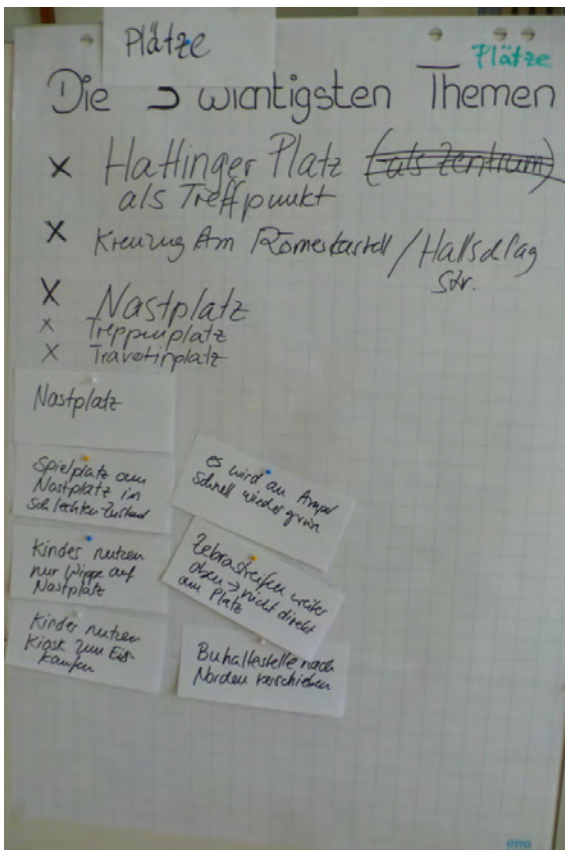 Plätze
Plätze
Die 3 wichtigsten Themen
x Hattinger Platz (als Zentrum)
als Treffpunkt
x Kreuzug Am Römerkastell / Hallschlag
Str.
x Nastplatz
x Treppenplatz
x Travetinplatz
Nastplatz
Spielplatz am
Nastplatz im
schlechten Zustand
Kinder nutzen
nur Wippe auf
Nastplatz
Kinder nutzen
Kiosk zum Eis-
kaufen
es wird an Ampel
schnell wieder grün
Zebrastreifen weiter
oben → nicht direkt
am Platz
Buhaltestelle nach
Norden verschieben